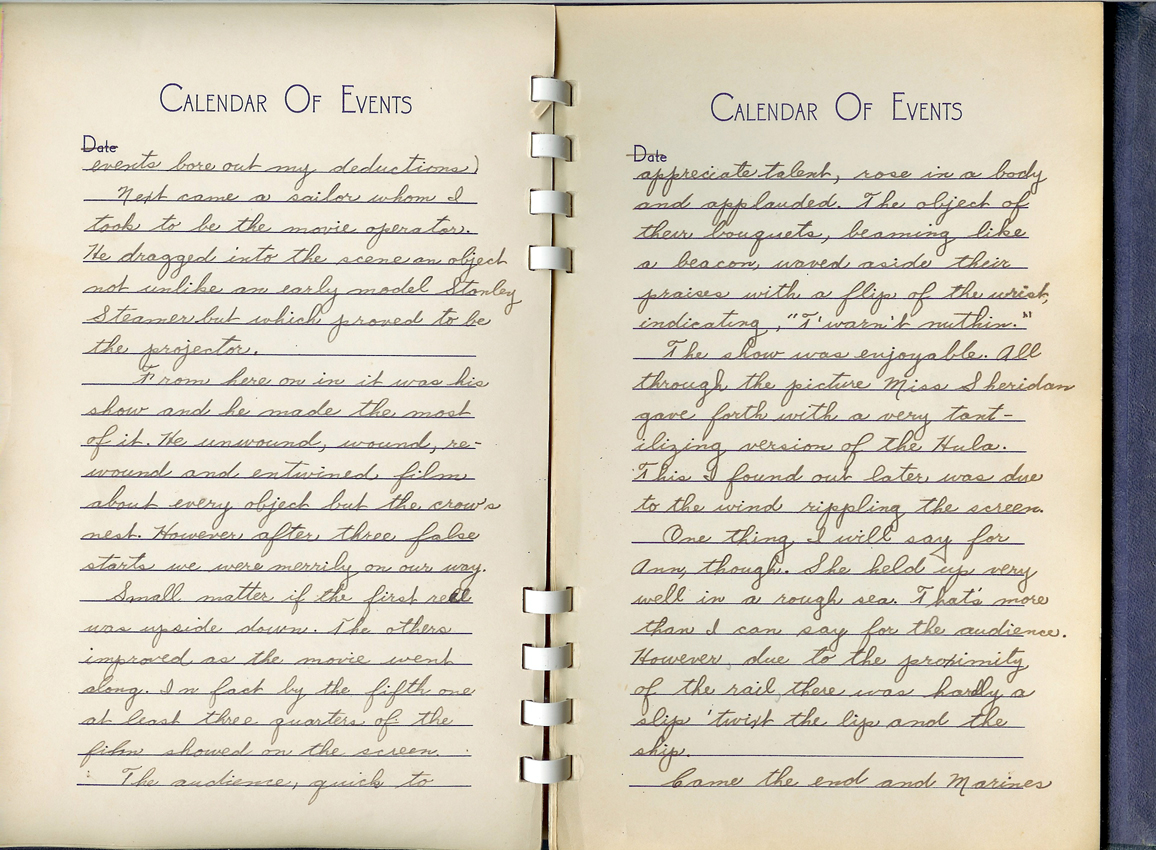 CALENDAR OF EVENTS
Date
events bore out my deductions)
Next came a sailor whom I
took to be the movie operator.
He dragged into the scene an object
not unlike an early model Stanley
Steamer but which proved to be
the projector.
From here on in it was his
show and he made the most
of it. He unwound, wound, re-
wound and entwined film
about every object but the crow's
nest. However, after, three false
starts we were merrily on our way.
Small matter if the first reel
was upside down. The others
improved as the movie went
along. In fact by the fifth one
at least three quarters of the
film showed on the screen.
The audience, quick to
CALENDAR OF EVENTS
Date
appreciate talent, rose in a body
and applauded. The object of
their bouquets, beaming like
a beacon, waved aside their
praises with a flip of the wrist,
indicating, "T'warn't nuthin."
The show was enjoyable. All
through the picture Miss Sheridan
gave forth with a very tant-
ilizing version of the Hula.
This I found out later, was due
to the wind rippling the screen.
One thing, I will say for
Ann, though. She held up very
well in a rough sea. That's more
than I can say for the audience.
However due to the proximity
of the rail, there was hardly a
slip 'twixt the lip and the
ship.
Came the end and Marines